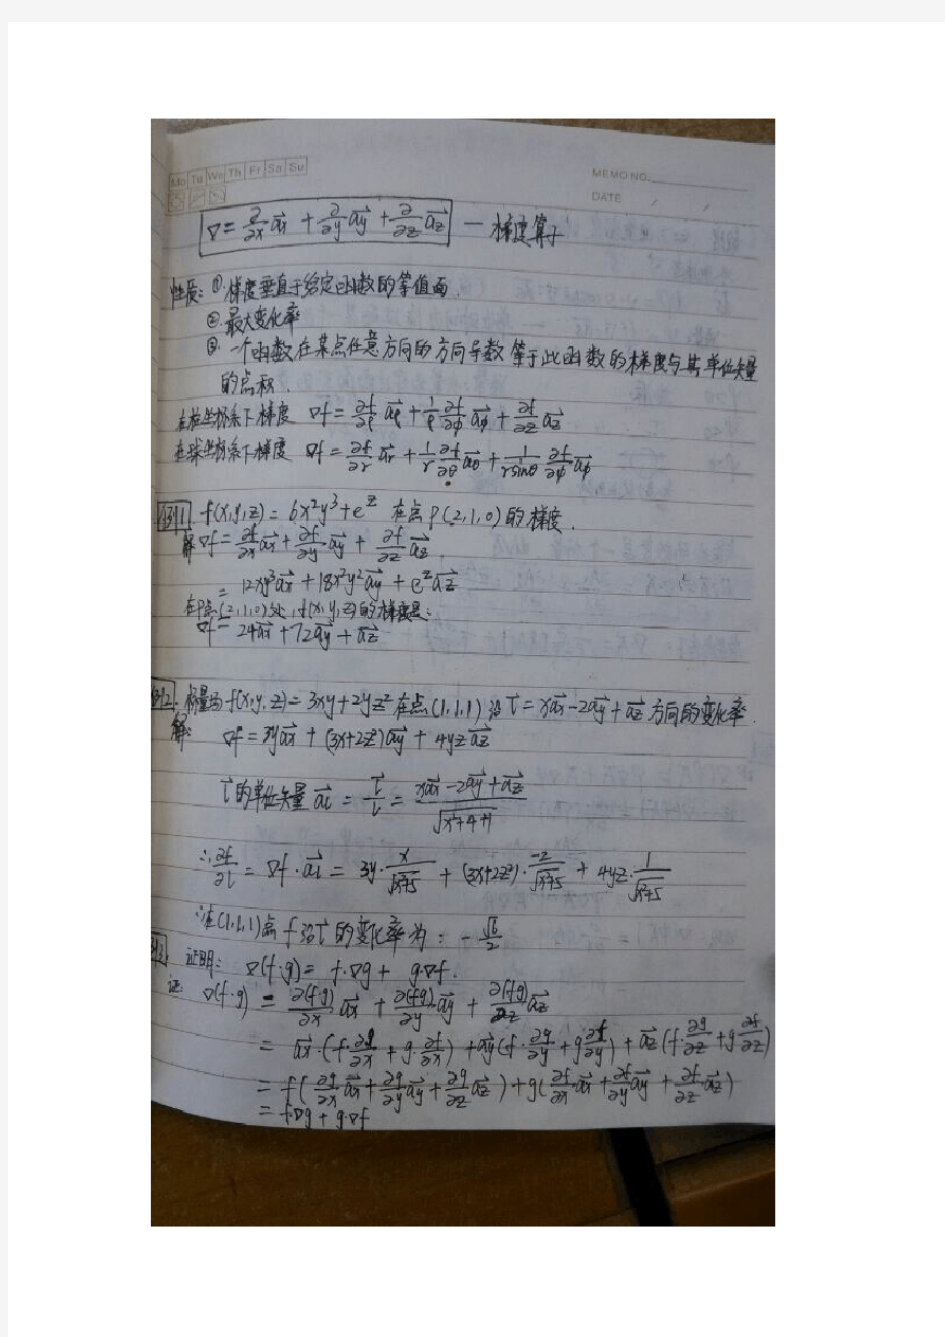 Mo Tu We Th Fr Sa Su
MEMO NO.
DATE / /
∇ = ∂/∂x a⃗x + ∂/∂y a⃗y + ∂/∂z a⃗z — 梯度算子
性质: ①. 梯度垂直于给定函数的等值面.
②. 最大变化率
③. 一个函数在某点任意方向的方向导数等于此函数的梯度与其单位矢量
的点积.
在柱坐标系下梯度 ∇f = ∂f/∂ρ a⃗ρ + 1/ρ ∂f/∂φ a⃗φ + ∂f/∂z a⃗z
在球坐标系下梯度 ∇f = ∂f/∂r a⃗r + 1/r ∂f/∂θ a⃗θ + 1/(r sinθ) ∂f/∂φ a⃗φ
例1. f(x,y,z) = 6x²y³ + e^z 在点 P(2,1,0) 的梯度.
解 ∇f = ∂f/∂x a⃗x + ∂f/∂y a⃗y + ∂f/∂z a⃗z
= 12xy³a⃗x + 18x²y²a⃗y + e^z a⃗z
在P点(2,1,0)处, f(x,y,z)的梯度是:
∇f = 24a⃗x + 72a⃗y + a⃗z
例2. 标量场 f(x,y,z) = 3xy + 2yz² 在点(1,1,1) 沿 l⃗ = xa⃗x - 2a⃗y + a⃗z 方向的变化率.
解: ∇f = 3ya⃗x + (3x+2z²)a⃗y + 4yz a⃗z
l⃗的单位矢量 a⃗l = l⃗/l = (xa⃗x - 2a⃗y + a⃗z)/√(x²+4+1)
∴ ∂f/∂l = ∇f · a⃗l = 3y · x/√(x²+5) + (3x+2z²) · -2/√(x²+5) + 4yz · 1/√(x²+5)
∴在(1,1,1)点 f 沿l⃗的变化率为: -√6/2
例3. 证明: ∇(f·g) = f·∇g + g·∇f.
证: ∇(f·g) = ∂(f·g)/∂x a⃗x + ∂(fg)/∂y a⃗y + ∂(fg)/∂z a⃗z
= a⃗x·(f·∂g/∂x + g·∂f/∂x) + a⃗y(f·∂g/∂y + g∂f/∂y) + a⃗z(f·∂g/∂z + g∂f/∂z)
= f(∂g/∂x a⃗x + ∂g/∂y a⃗y + ∂g/∂z a⃗z) + g(∂f/∂x a⃗x + ∂f/∂y a⃗y + ∂f/∂z a⃗z)
= f·∇g + g·∇f